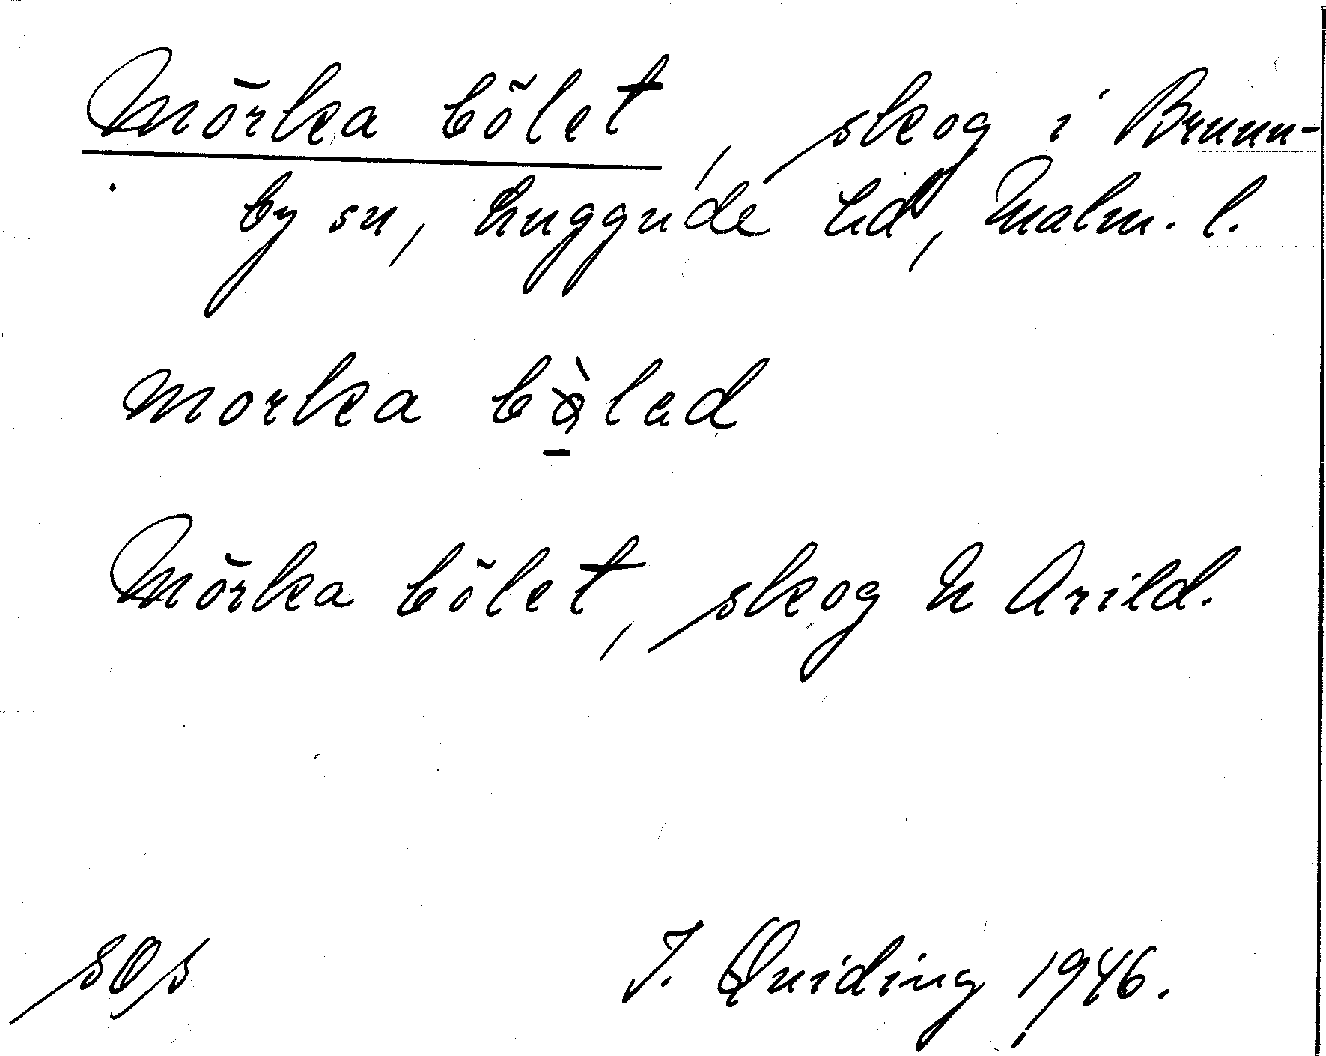 Mörka bölet, skog i Brunn-
by sn, Luggude hd, Malm. l.
morka bø̀lad
Mörka bölet, skog N Arild.
sOs J. Quiding 1946.